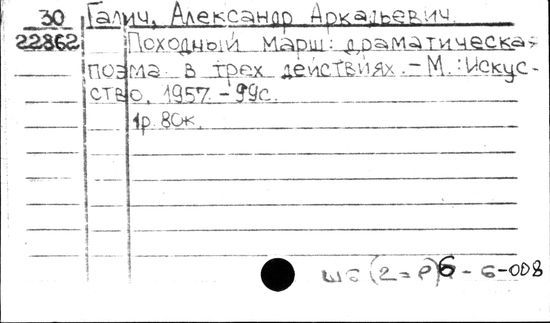 30 Галич, Александр Аркадьевич.
22862 Походный марш: драматическая
поэма в трех действиях. - М.: Искус-
ство, 1957. - 99с.
1р. 80к.
Ш6 (2=Р)6 - 6-008